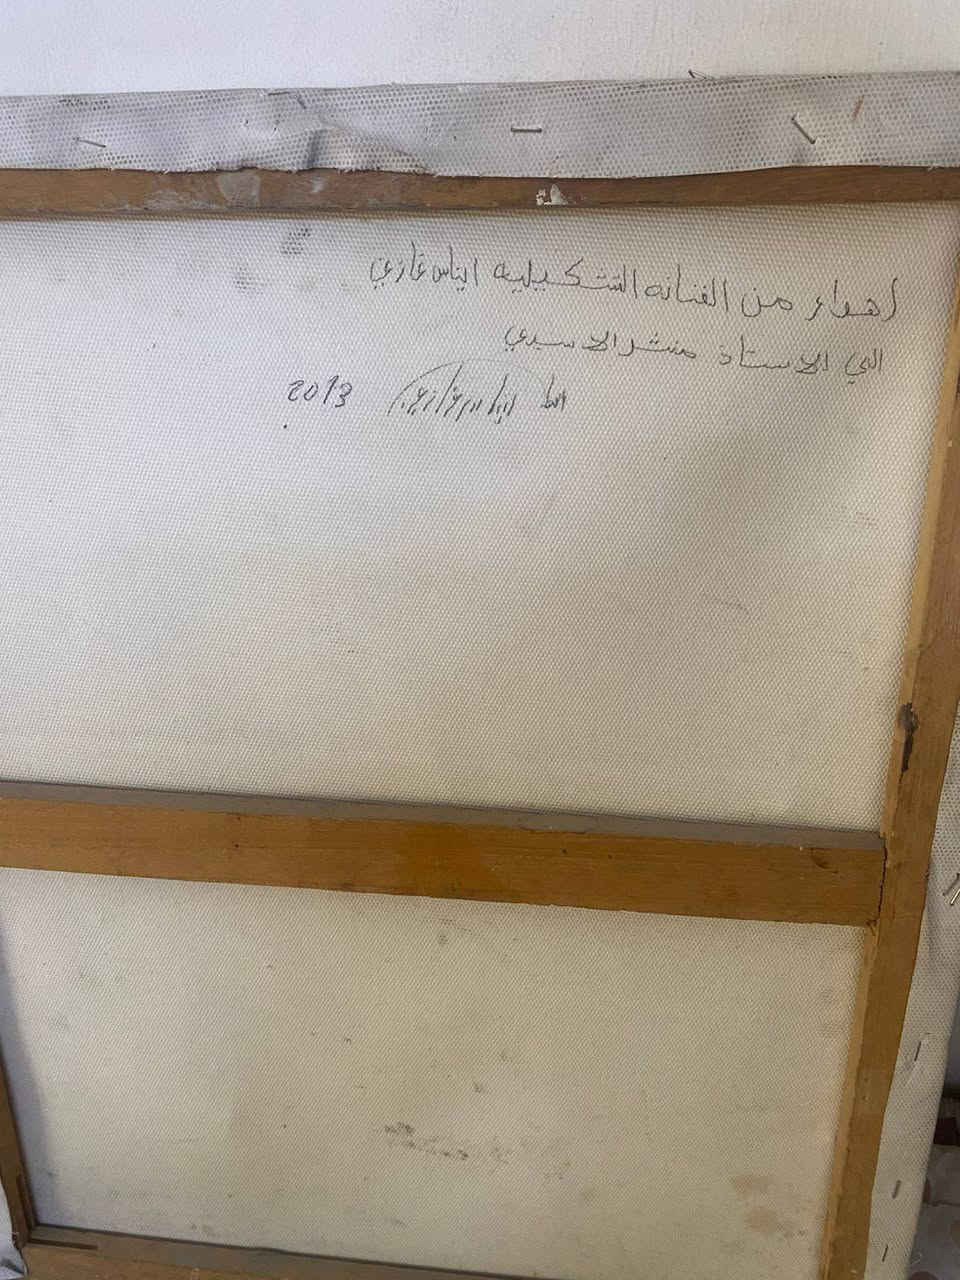 اهداء من الفنانه التشكيليه ايناس غازي
الى الاستاذ منشد الاسيدي
ايناس غازي 2013